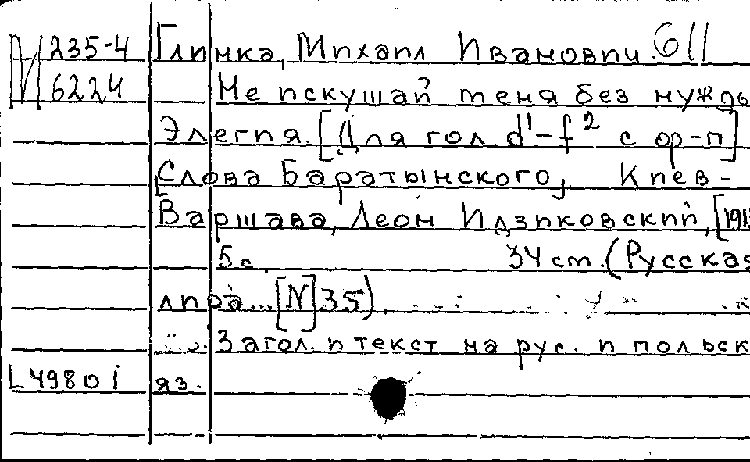 М 235-4 Глинка, Михаил Иванович. 611
6224 Не искушай меня без нужды
Элегия. [Для гол. d¹-f² с ф-п]
[Слова Баратынского, Киев-
Варшава, Леон Идзиковский, [191
5 с. 34 см. (Русская
лира... [N] 35).
Загол. и текст на рус. и польск
L 49801 яз.